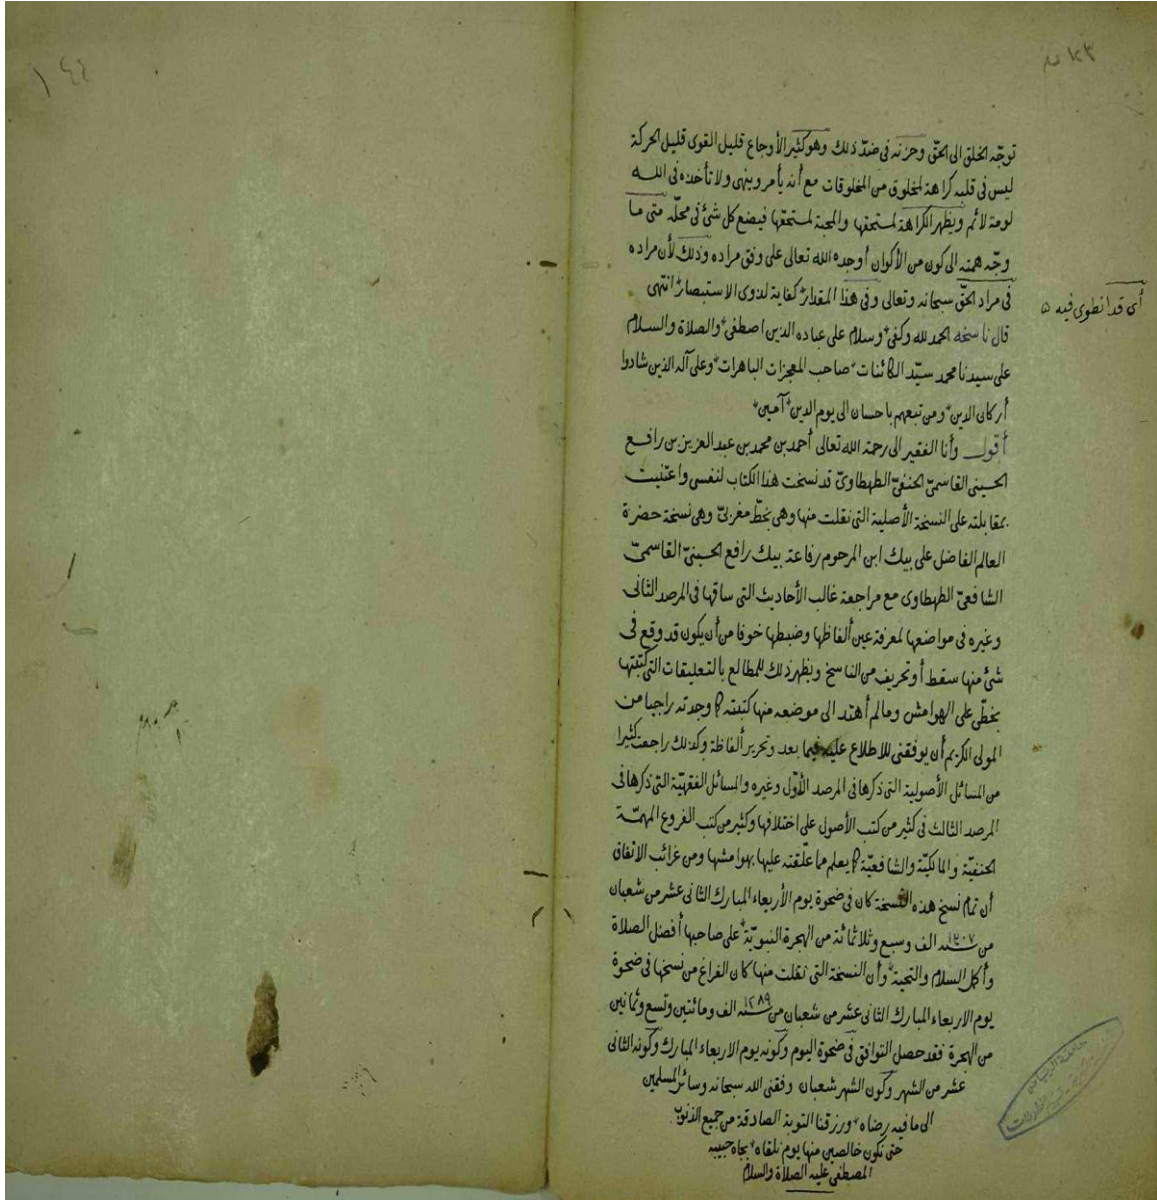 توجّه الخلق الى الحقّ وحزنه فى ضدّ ذلك وهو كثير الأوجاع قليل القوى قليل الحركة
ليس فى قلبه كراهة لمخلوق من المخلوقات مع أنه يأمر وينهى ولا تأخذه فى الله
لومة لائم ويظهر الكراهة لمستحقها والمحبة لمستحقها فيضع كل شئ فى محلّه متى ما
وجّه همته الى كون من الأكوان أوجده الله تعالى على وفق مراده وذلك لأن مراده
فى مراد الحقّ سبحانه وتعالى وفى هذا المقدار كفاية لذوى الاستبصار انتهى
أى قد انطوى فيه
قال ناسخه الحمد لله وكفى وسلام على عباده الذين اصطفى والصلاة والسلام
على سيدنا محمد سيّد الكائنات صاحب المعجزات الباهرات وعلى آله الذين شادوا
أركان الدين ومن تبعهم باحسان الى يوم الدين آمين
أقول وأنا الفقير الى رحمة الله تعالى أحمد بن محمد بن عبد العزيز بن رافع
الحسينى القاسمىّ الحنفىّ الطهطاوىّ قد نسخت هذا الكتاب لنفسى واعتنيت
بمقابلته على النسخة الأصلية التى نقلت منها وهى بخطّ مغربىّ وهى نسخة حضرة
العالم الفاضل على بيك ابن المرحوم رفاعة بيك رافع الحسينىّ القاسمىّ
الشافعىّ الطهطاوى مع مراجعة غالب الأحاديث التى ساقها فى المرصد الثانى
وغيره فى مواضعها لمعرفة عين ألفاظها وضبطها خوفا من أن يكون قد وقع فى
شئ منها سقط أو تحريف من الناسخ ويظهر ذلك للمطالع بالتعليقات التى كتبتها
بخطّى على الهوامش ومالم أهتد الى موضعه منها كتبته كما وجدته راجيا من
المولى الكريم أن يوفقنى للاطلاع عليه فيما بعد وتحرير ألفاظه وكذلك راجعت كثيرا
من المسائل الأصولية التى ذكرها فى المرصد الأوّل وغيره والمسائل الفقهيّة التى ذكرها فى
المرصد الثالث فى كثير من كتب الأصول على اختلافها وكثير من كتب الفروع المهمّة
الحنفيّة والمالكيّة والشافعيّة كما يعلم مما علّقته عليها بهوامشها ومن غرائب الاتفاق
أن تمام نسخ هذه النسخة كان فى ضحوة يوم الأربعاء المبارك الثانى عشر من شعبان
من سنه ١٣٠٧ الف وسبع وثلاثمائة من الهجرة النبويّة على صاحبها أفضل الصلاة
وأكمل السلام والتحية وأن النسخة التى نقلت منها كان الفراغ من نسخها فى ضحوة
يوم الاربعاء المبارك الثانى عشر من شعبان من سنه ١٢٨٩ الف ومائتين وتسع وثمانين
من الهجرة فقد حصل التوافق فى ضحوة اليوم وكونه يوم الاربعاء المبارك وكونه الثانى
عشر من الشهر وكون الشهر شعبان وفقنى الله سبحانه وسائر المسلمين
الى ما فيه رضاه ورزقنا التوبة الصادقة من جميع الذنوب
حتى نكون خالصين منها يوم نلقاه بجاه حبيبه
المصطفى عليه الصلاة والسلام